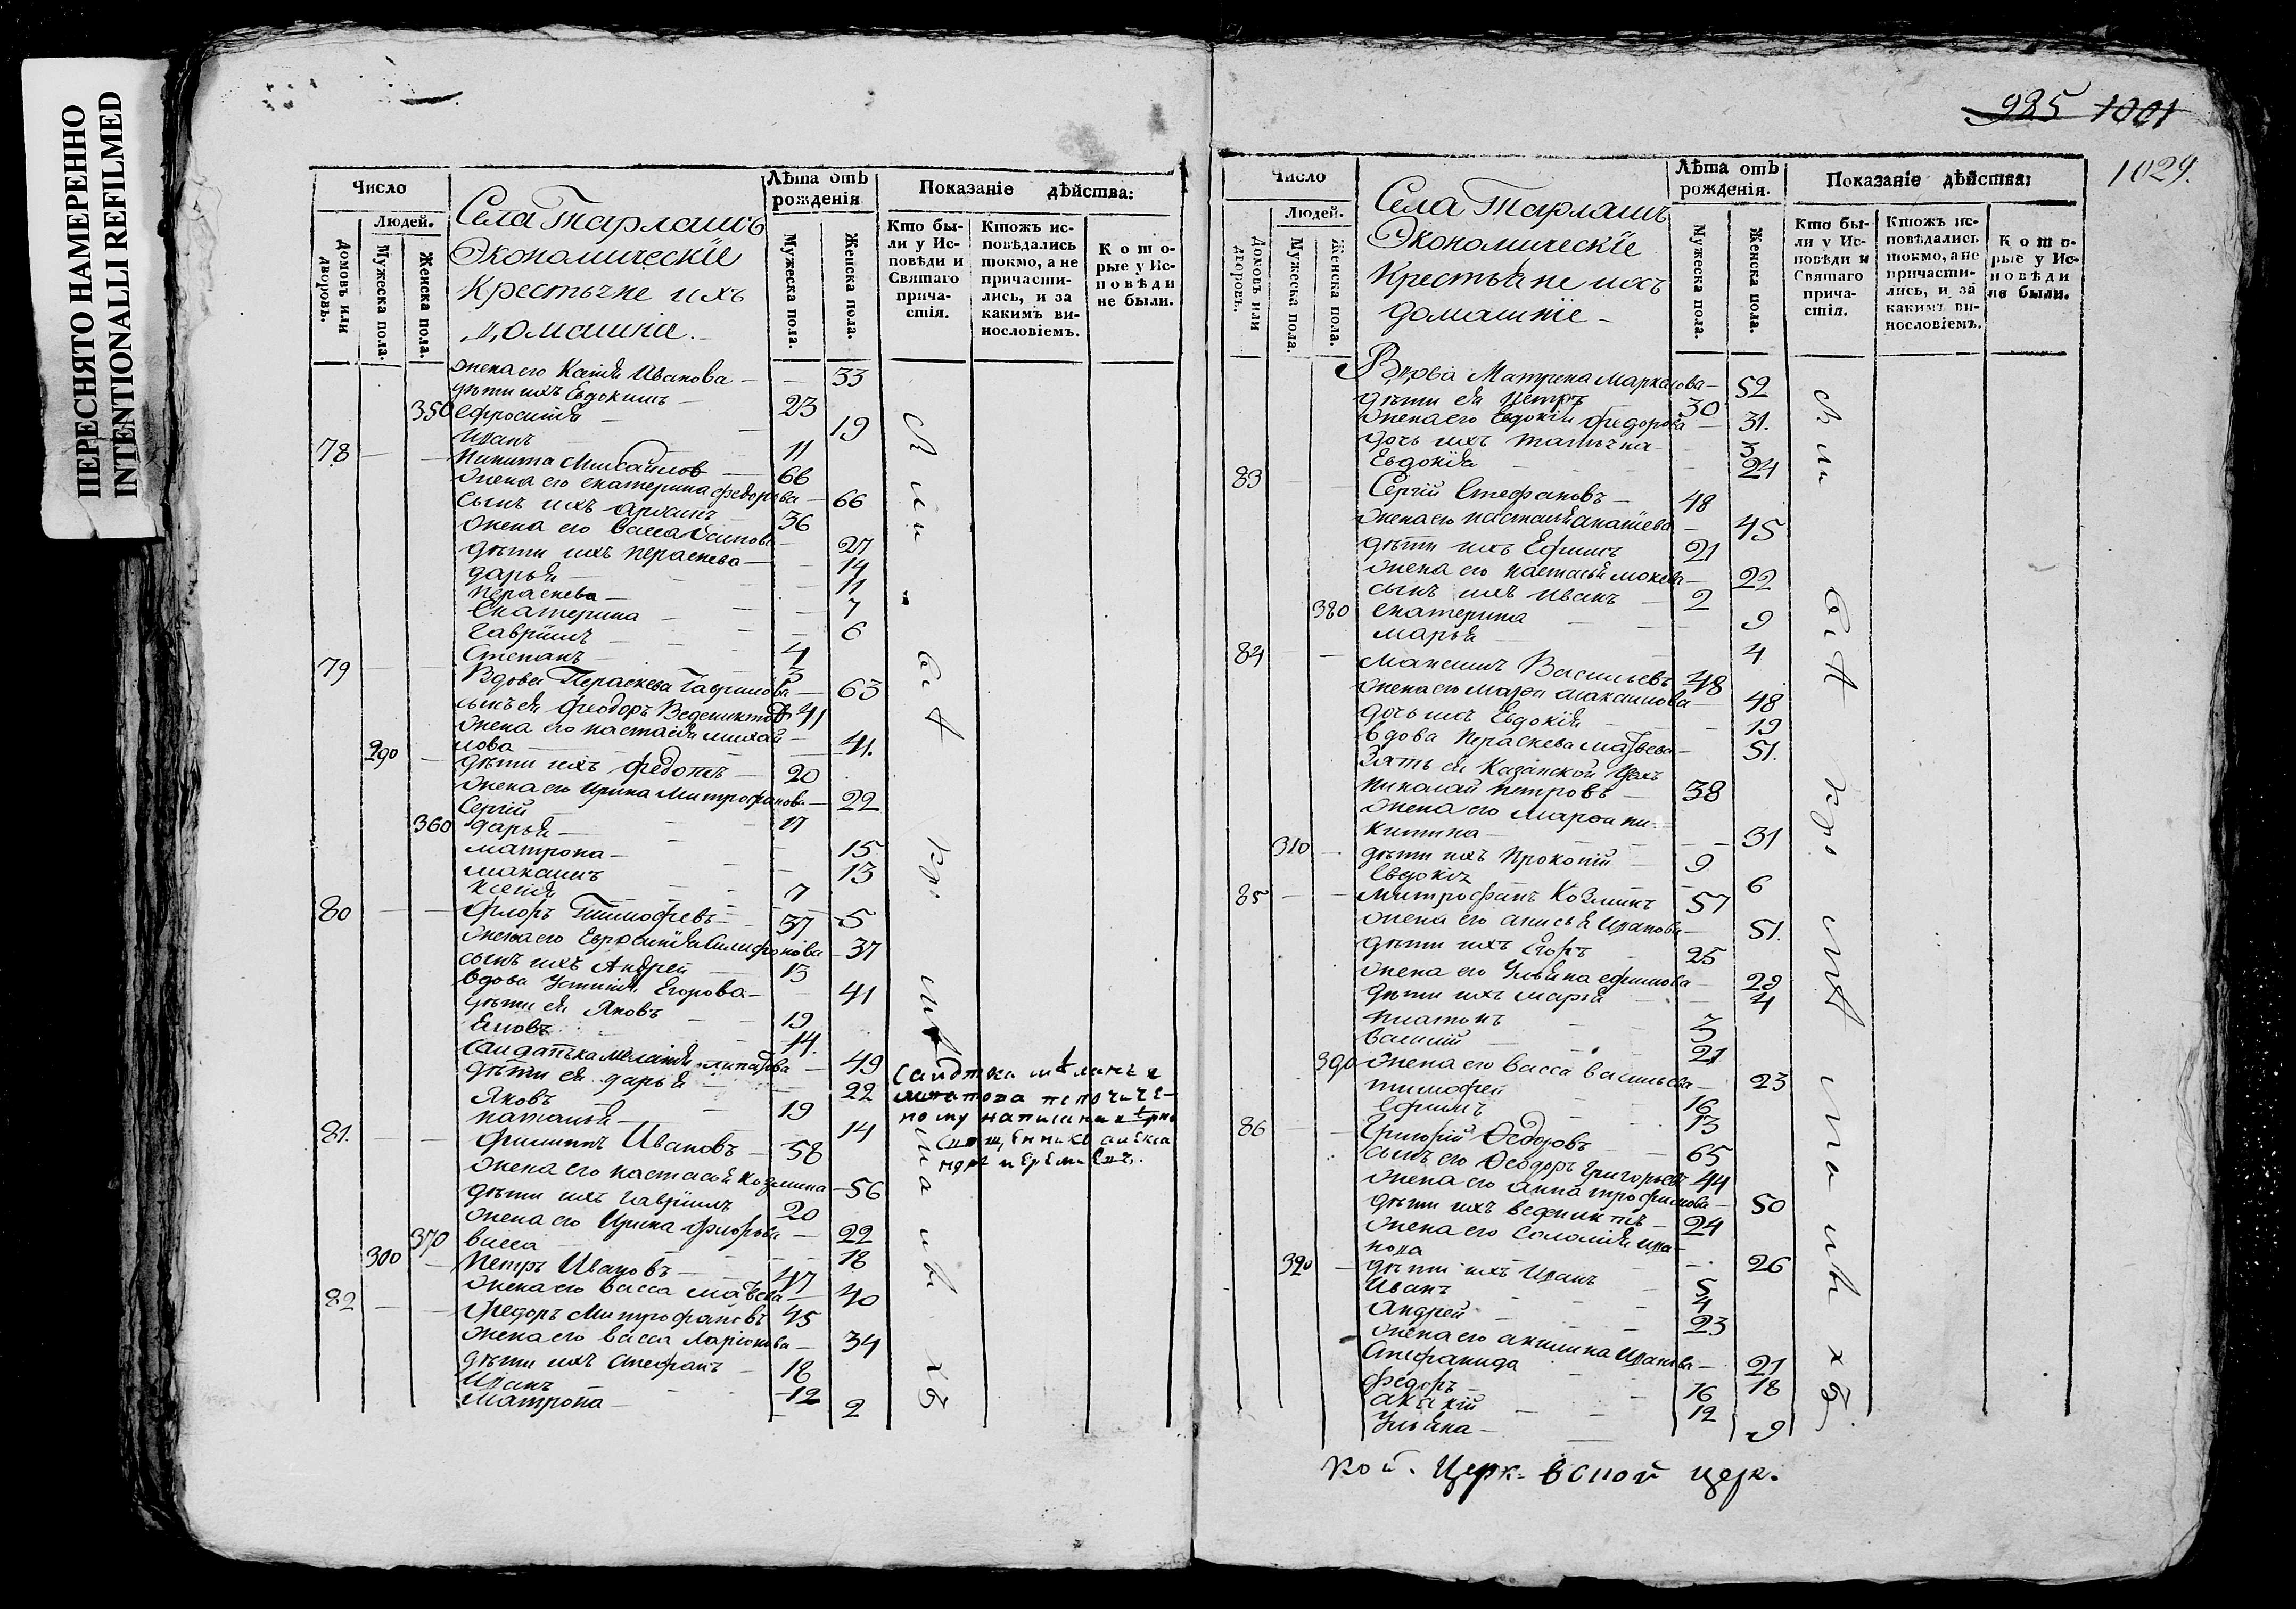 ПЕРЕСНЯТО НАМЕРЕННО
INTENTIONALLI REFILMED
Число
Людей.
Домовъ или дворовъ.
Мужеска пола.
Женска пола.
Села Тарлашъ
Экономическіе
Крестьяне ихъ
домашніе.
Лѣта отъ рожденія
Мужеска пола.
Женска пола.
Показаніе дѣйства:
Кто бы-
ли у Ис-
повѣди и
Святаго
прича-
стія.
Ктожъ ис-
повѣдались
токмо, а не
причасти-
лись, и за
какимъ ви-
нословіемъ.
Кото-
рые у Ис-
повѣди
не были.
жена его Ксенія Иванова — 33
дѣти ихъ Евдокимъ — 23
350 Ефросинія — 19
Иванъ 11
78 Никита Михайловъ — 66
жена его екатерина федорова — 66
сынъ ихъ архипъ 36
жена его васса Осипова 27
дѣти ихъ Пераскева — 14
дарья — 11
Пераскева — 7
Екатерина 6
Гавріилъ 4
Степанъ — 3
79 Вдова Пераскева Гаврилова — 63
сынъ ея Феодоръ Веденихтовъ 41
жена его настасія михай
лова 41.
290 дѣти ихъ федотъ — 20
жена его Ирина Митрофанова — 22
Сергій 17
360 дарья — 15
матрона — 13
максимъ 7
Ксенія 5
80 Флоръ Тимофеевъ — 37
жена его Евросинія 37
сынъ ихъ Андрей 13
вдова Устинія Егорова — 41
дѣти ея Яковъ 19
14.
Салдатка Меланія 49
дѣти ея дарья 22
Яковъ 19
наталья — 14
81. Филиппъ Ивановъ — 58
жена его настасья Козмина — 56
дѣти ихъ Гавріилъ 20
жена его Ирина Флорова — 22
370 васса 18
300 Петръ Ивановъ — 47
жена его васса 40
82 Федоръ Митрофановъ 45
жена его васса Ларіонова — 34
дѣти ихъ Стефанъ 18
Иванъ 12
Матрона — 2
985 1001
1029.
Число
Людей.
Домовъ или дворовъ.
Мужеска пола.
Женска пола.
Села Тарлашъ
Экономическіе
Крестьяне ихъ
домашніе —
Лѣта отъ рожденія.
Мужеска пола.
Женска пола.
Показаніе дѣйства:
Кто бы-
ли у Ис-
повѣди и
Святаго
прича-
стія.
Ктожъ ис-
повѣдались
токмо, а не
причасти-
лись, и за
какимъ ви-
нословіемъ.
Кото-
рые у Ис-
повѣди
не были.
Вдова Матрена Маркелова — 52
дѣти ея Петръ 30
жена его Евдокія федорова — 31.
дочь ихъ татьяна 3
Евдокія 24
83 Сергій Стефановъ — 48
жена его настасья 45
дѣти ихъ Ефимъ 21
жена его настасья 22
сынъ ихъ иванъ 2
380 екатерина 9
марья 4
84 Максимъ Васильевъ 48
жена его максимова — 48
дочь ихъ Евдокія 19
вдова Пераскева 51.
Зять ея Казанской
Николай Петровъ 38
жена его ни-
китина 31
310 дѣти ихъ Прокопій 9
Евдокія 6
85 Митрофанъ Козминъ 57
жена его анисья Иванова 51.
дѣти ихъ Егоръ 25
жена его Ульяна ефимова 29
дѣти ихъ марія 4
платонъ 3
василій 21
390 жена его васса васильева — 23
тимофей 16
Ефимъ 13
86 Григорій Ѳедоровъ — 65
сынъ его Ѳеодоръ Григорьевъ 44
жена его анна трофимова — 50
дѣти ихъ веденихтъ — 24
жена его Соломія ива
нова 26
320 дѣти ихъ Иванъ 5
Иванъ 4
Андрей 23
жена его акилина Иванова — 21
Стефанида 18
Федоръ — 16
акакій 12
Ульяна — 9